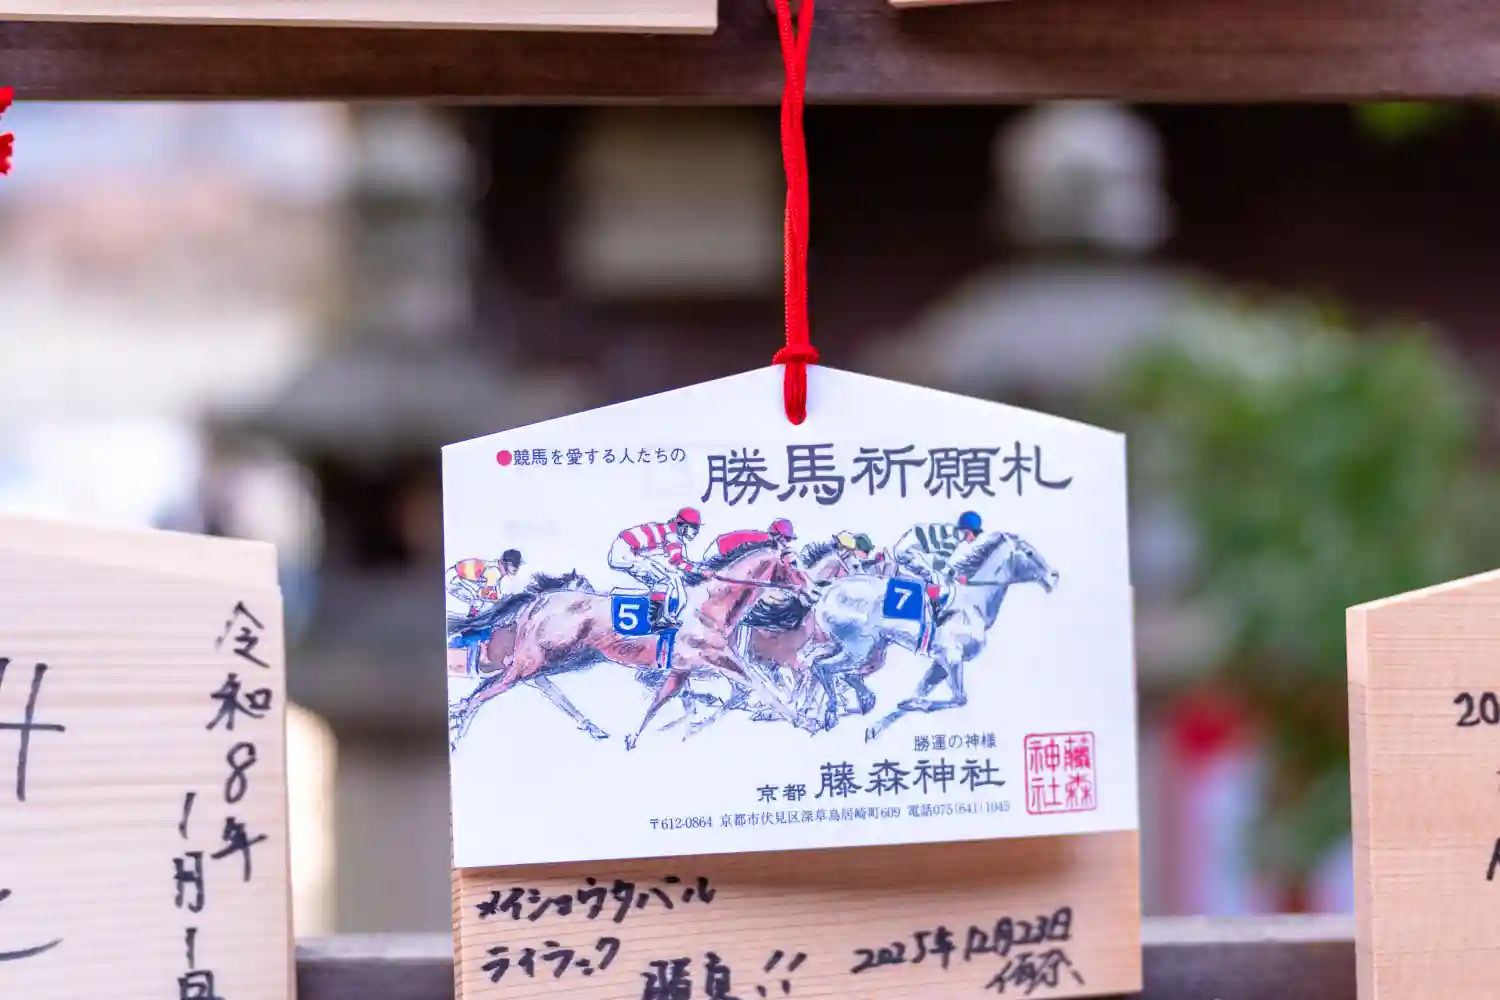 ●競馬を愛する人たちの
勝馬祈願札
5
7
勝運の神様
京都 藤森神社
藤森
神社
〒612-0864 京都市伏見区深草鳥居崎町609 電話075(641)1045
メイショウタバル
ライラック
!!
2025年12月23日
令和8年
1月1日
20